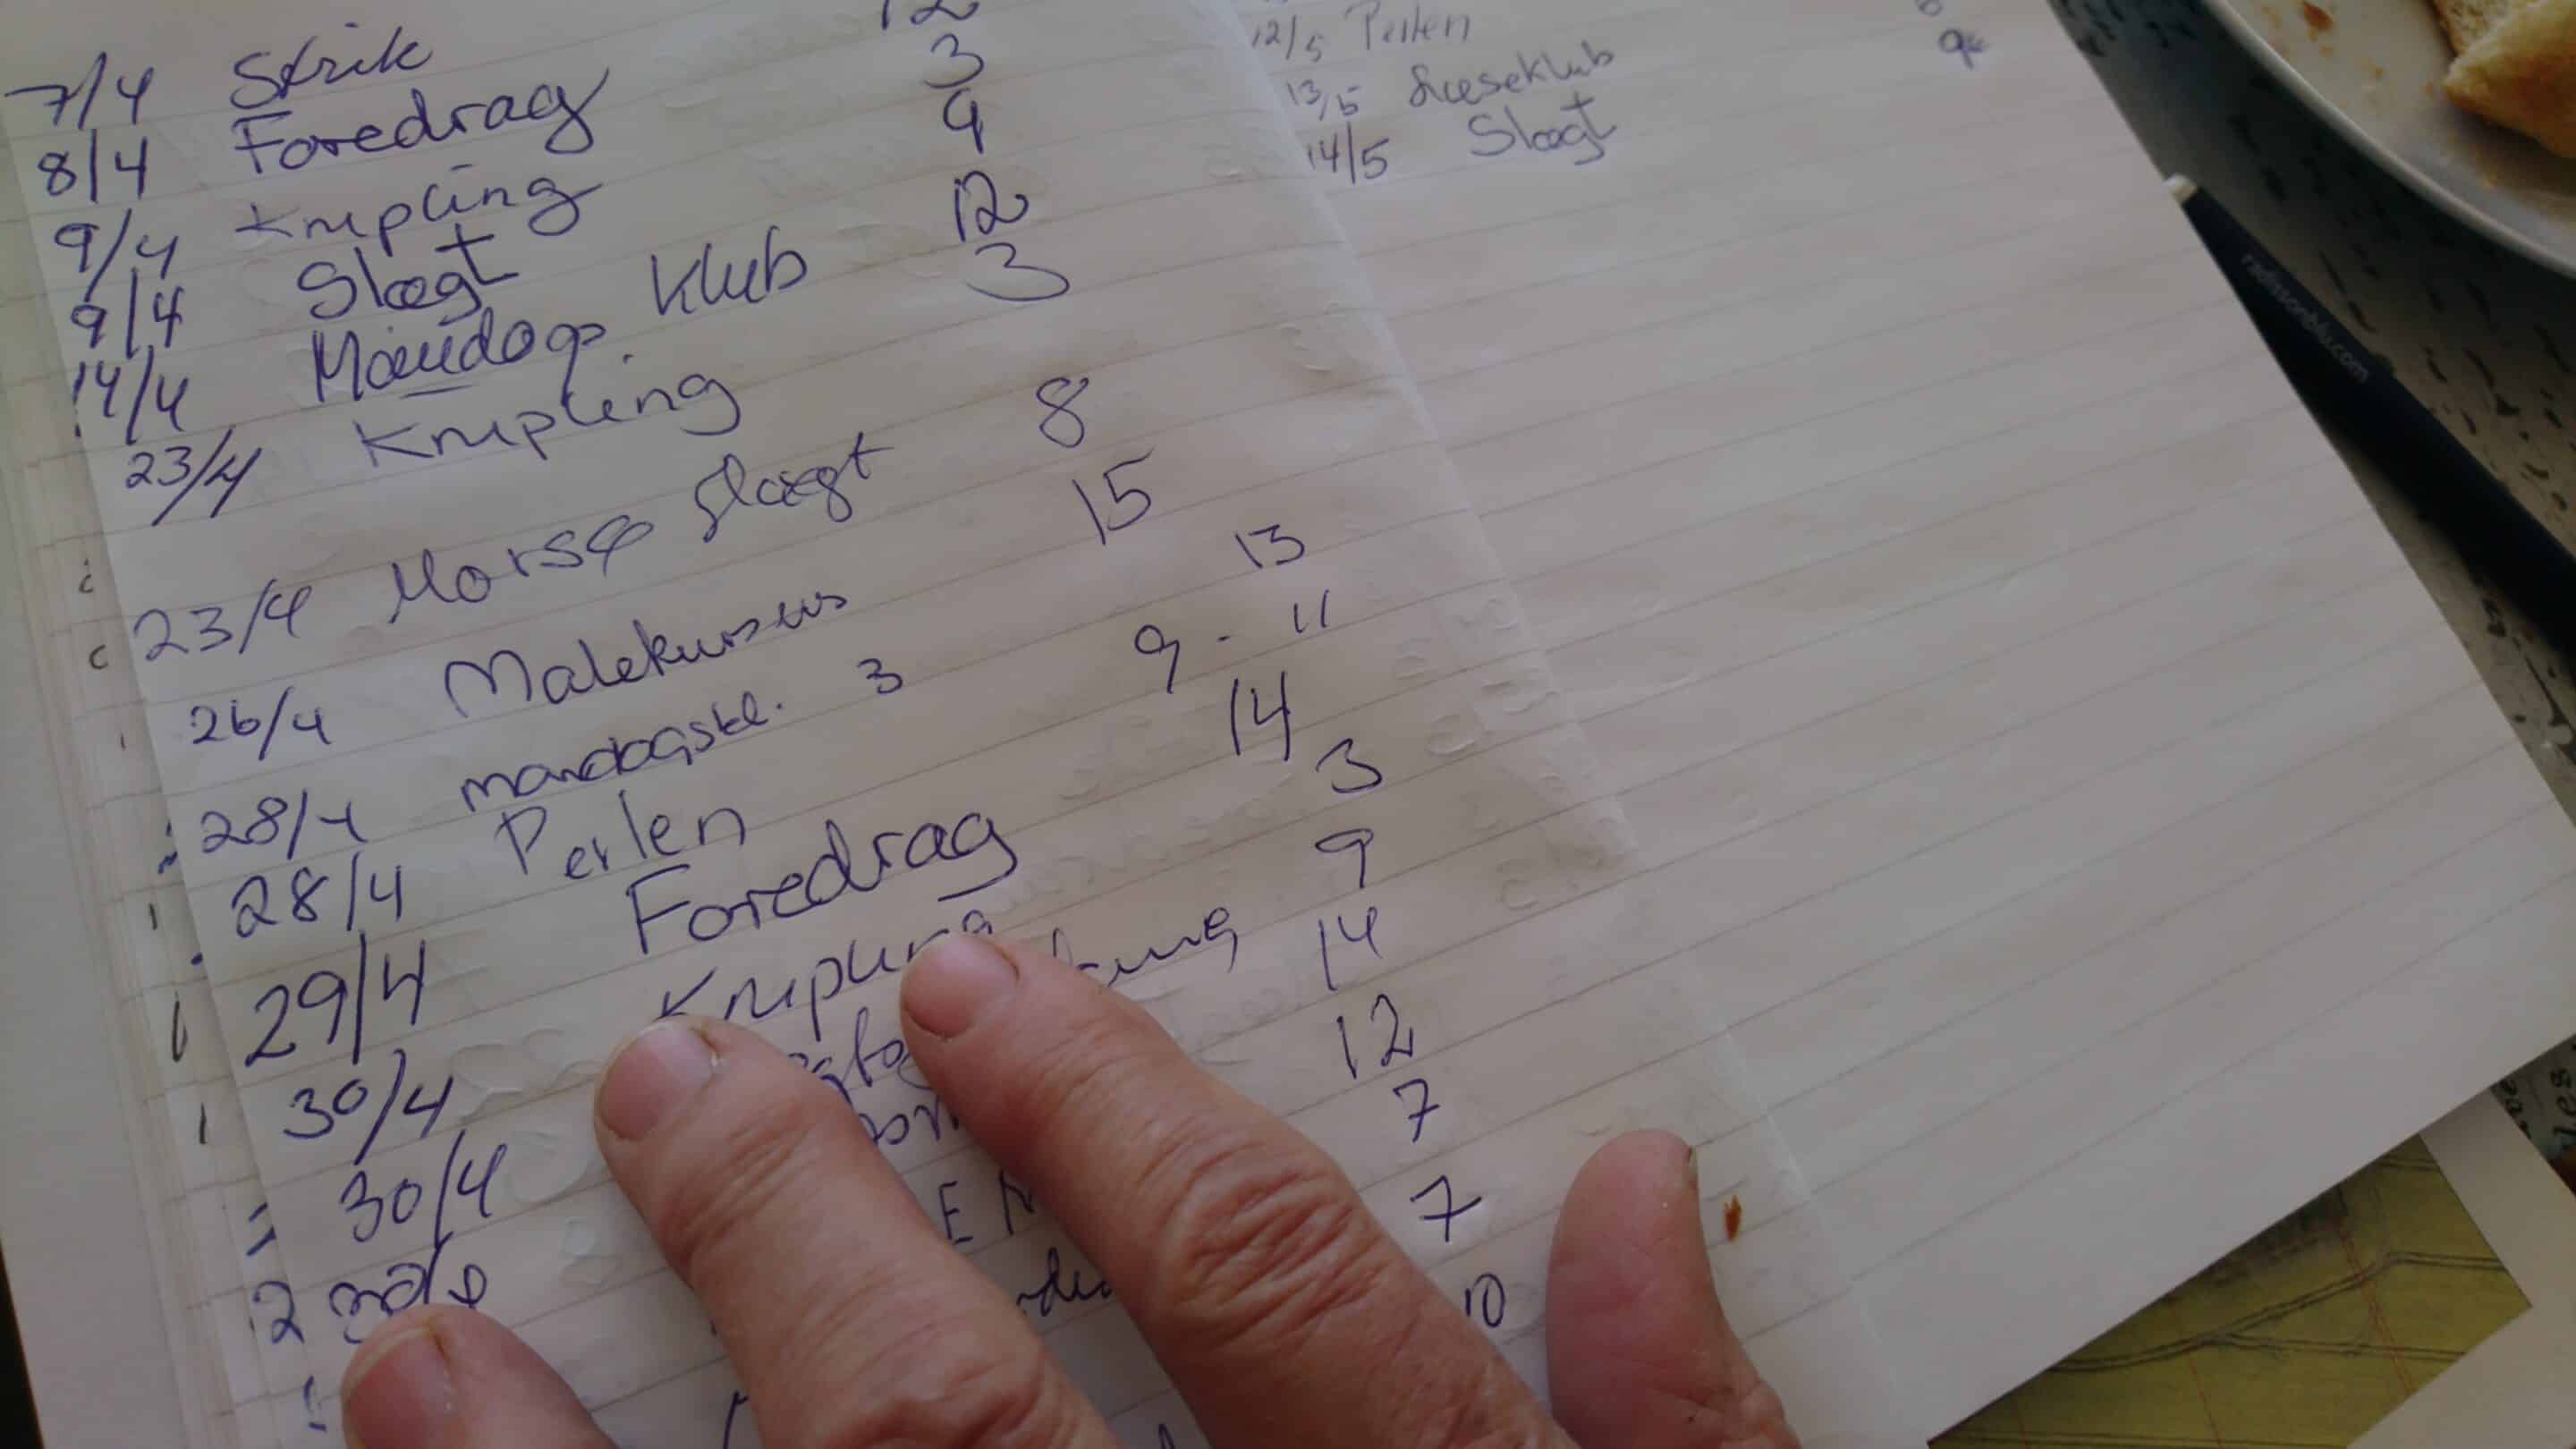 12
7/4 Strik 3
8/4 Foredrag 9
9/4 Knipling 12
9/4 Slægt 3
14/4 Mandags. Klub
23/4 Knipling 8
23/4 Morsø Slægt 15
26/4 Malekursus 13
28/4 mandagskl. 3 9 - 11
28/4 Perlen 14
29/4 Foredrag 3
30/4 Knipling 9
30/4 14
2 12
7
7
10
12/5 Perlen
13/5 Læseklub
14/5 Slægt
radissonblu.com